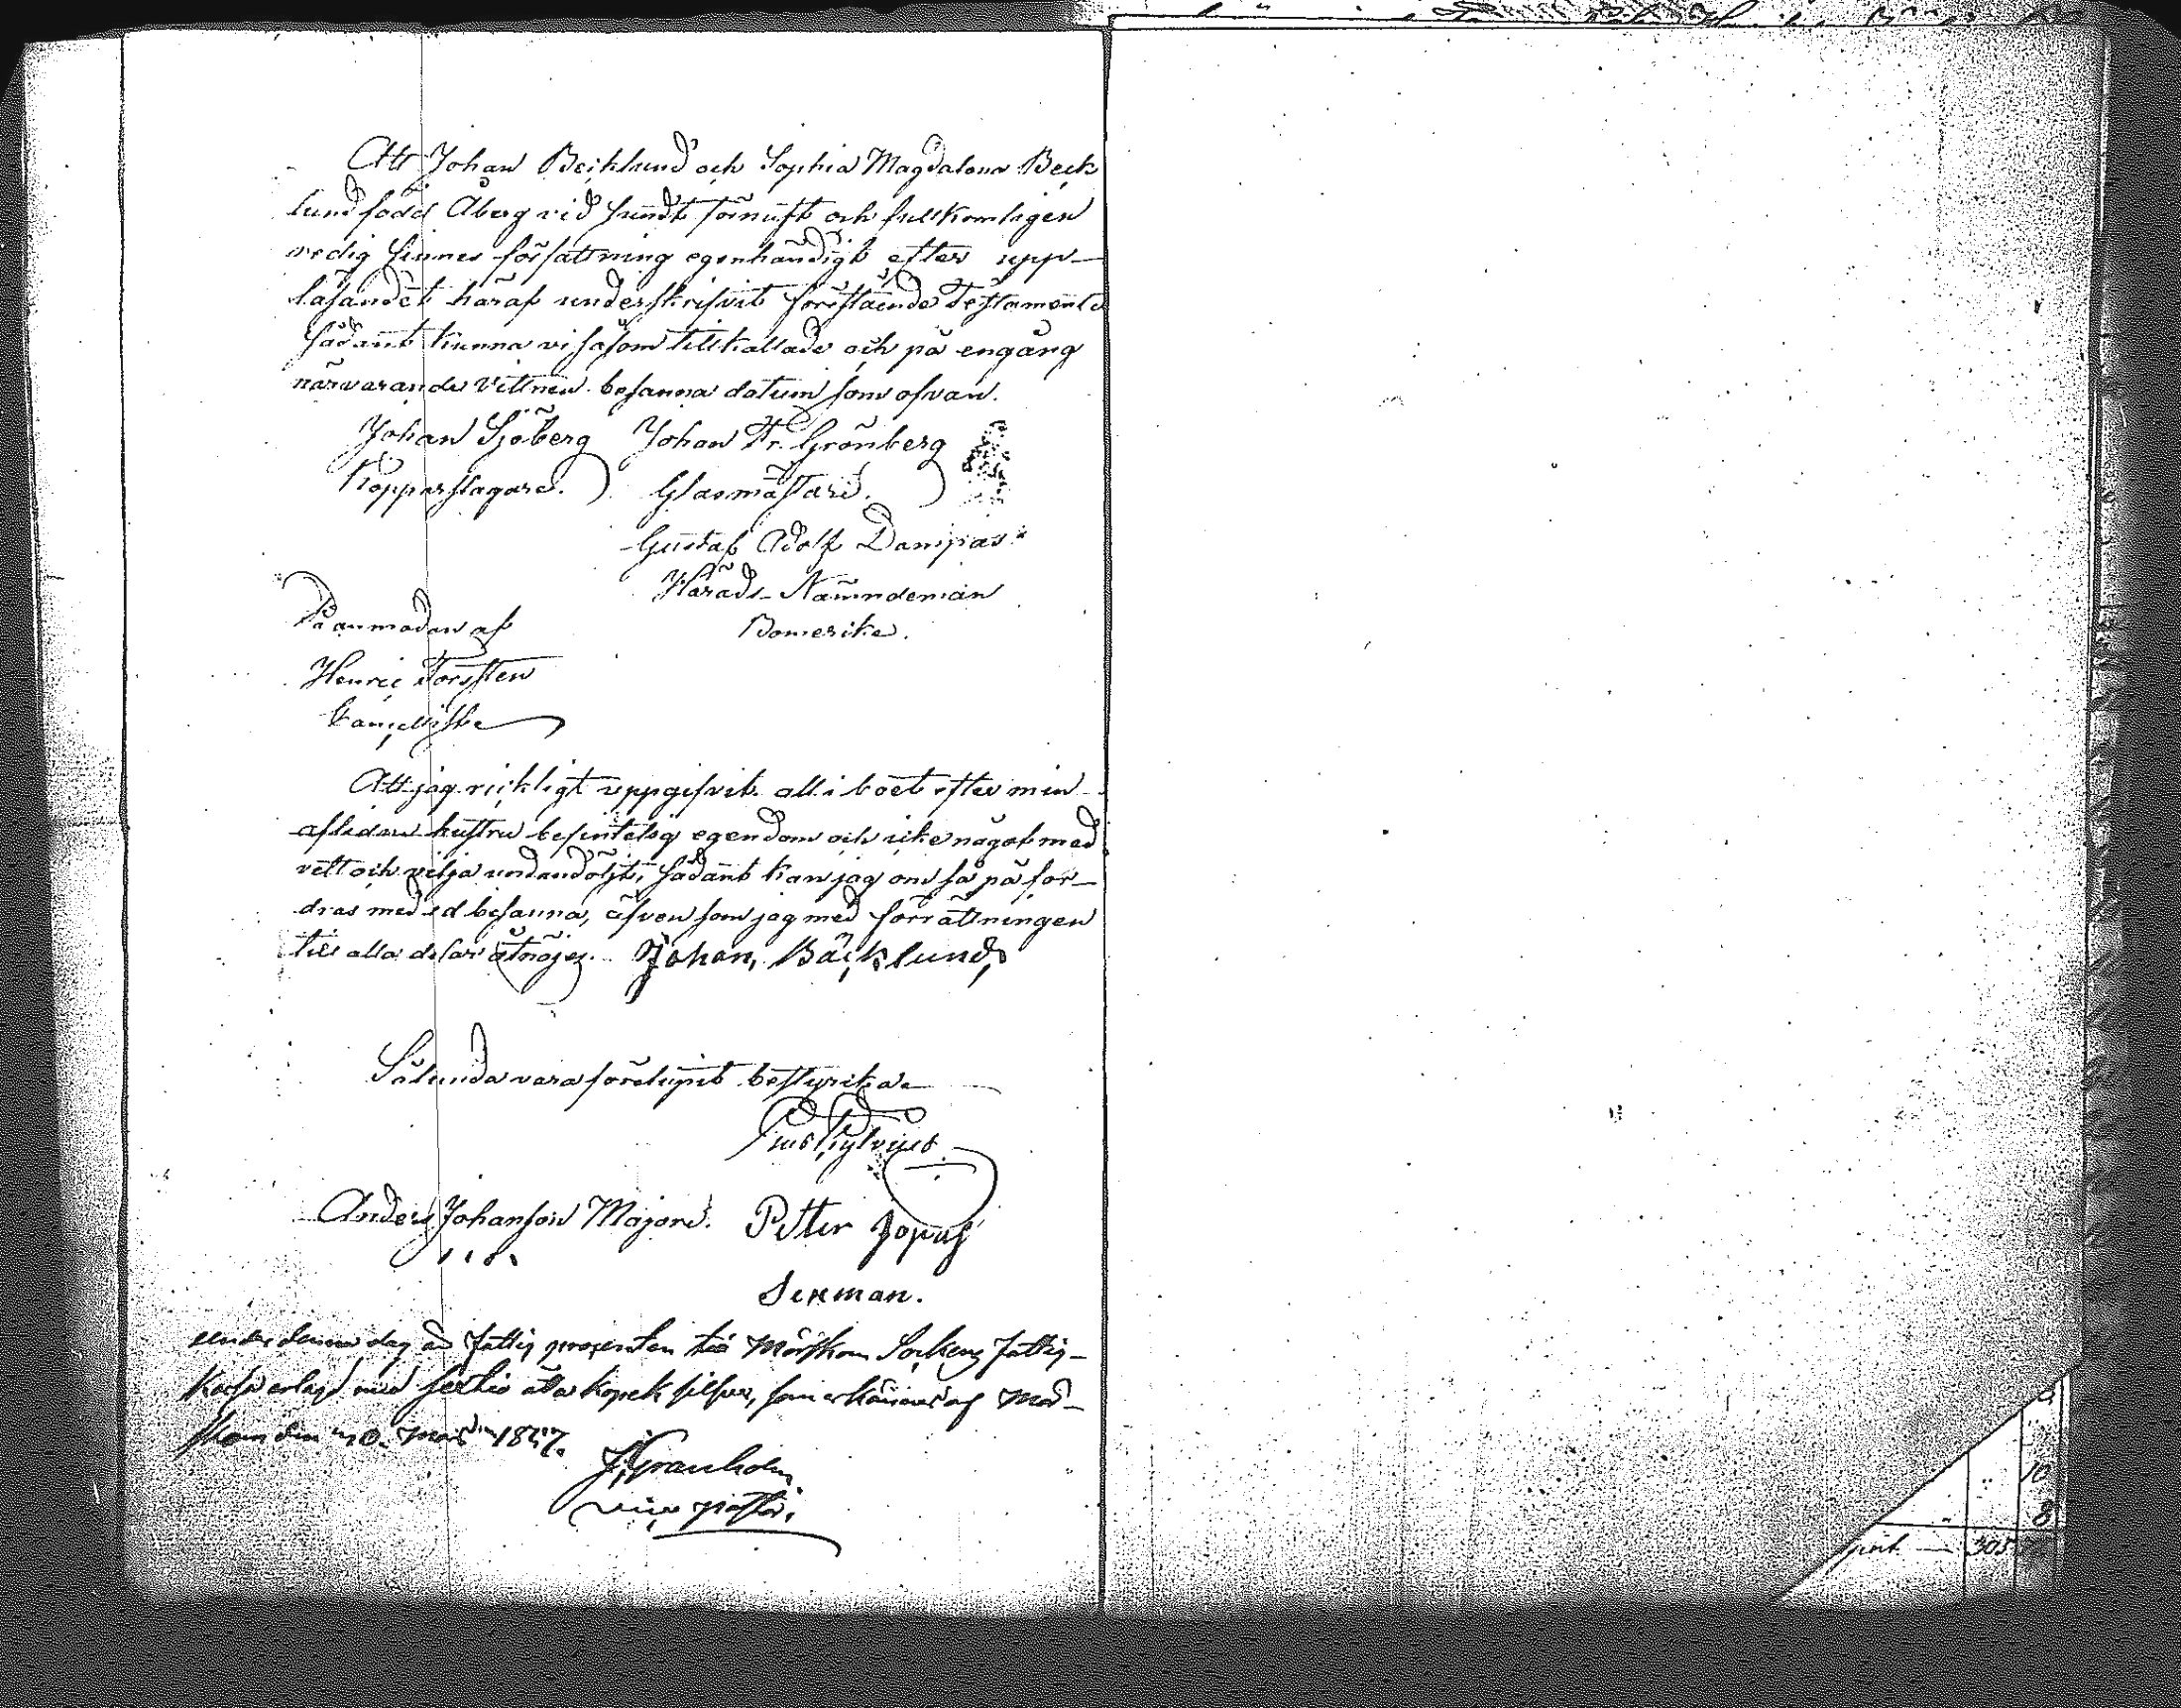 Att Johan Becklund och Sophia Magdalena Beck
lund född Åberg vid sundt förnuft och fullkomligen
redig sinnes författning egenhändigt efter upp-
läsandet häraf underskrifvit förestående Testamente
sådant kunna vi såsom tillkallade och på engång
närvarande Vittnen besanna datum som ofvan.
Johan Sjöberg Johan Fr. Grönberg
Kopparslagare. Glasmästare.
Gustaf Adolf Danijias
Härads-Nämndeman
På anmodan af Bomerike.
Henric Forsten
Cancellist
Att jag riktigt uppgifvit allt i boet efter min
aflidne hustru befintelig egendom och icke något med
vett och vilja undandöljt, sådant kan jag om så på for-
dras med ed besanna, äfven som jag med förrättningen
till alla delar åtnöjer. Johan, Bäcklund,
Sålunda vara förelupit bestyrka
Anders Johanson Majors. Petter Jopas
Sexman.
under denna dag är fattig procenten till Mörskom Sockens fattig-
Kassa erlagd med sextio åtta kopek silfver, som erkännes af Mör-
skom den 20. Mars 1857.
J. Granholm
vice pastor.
10
8
305